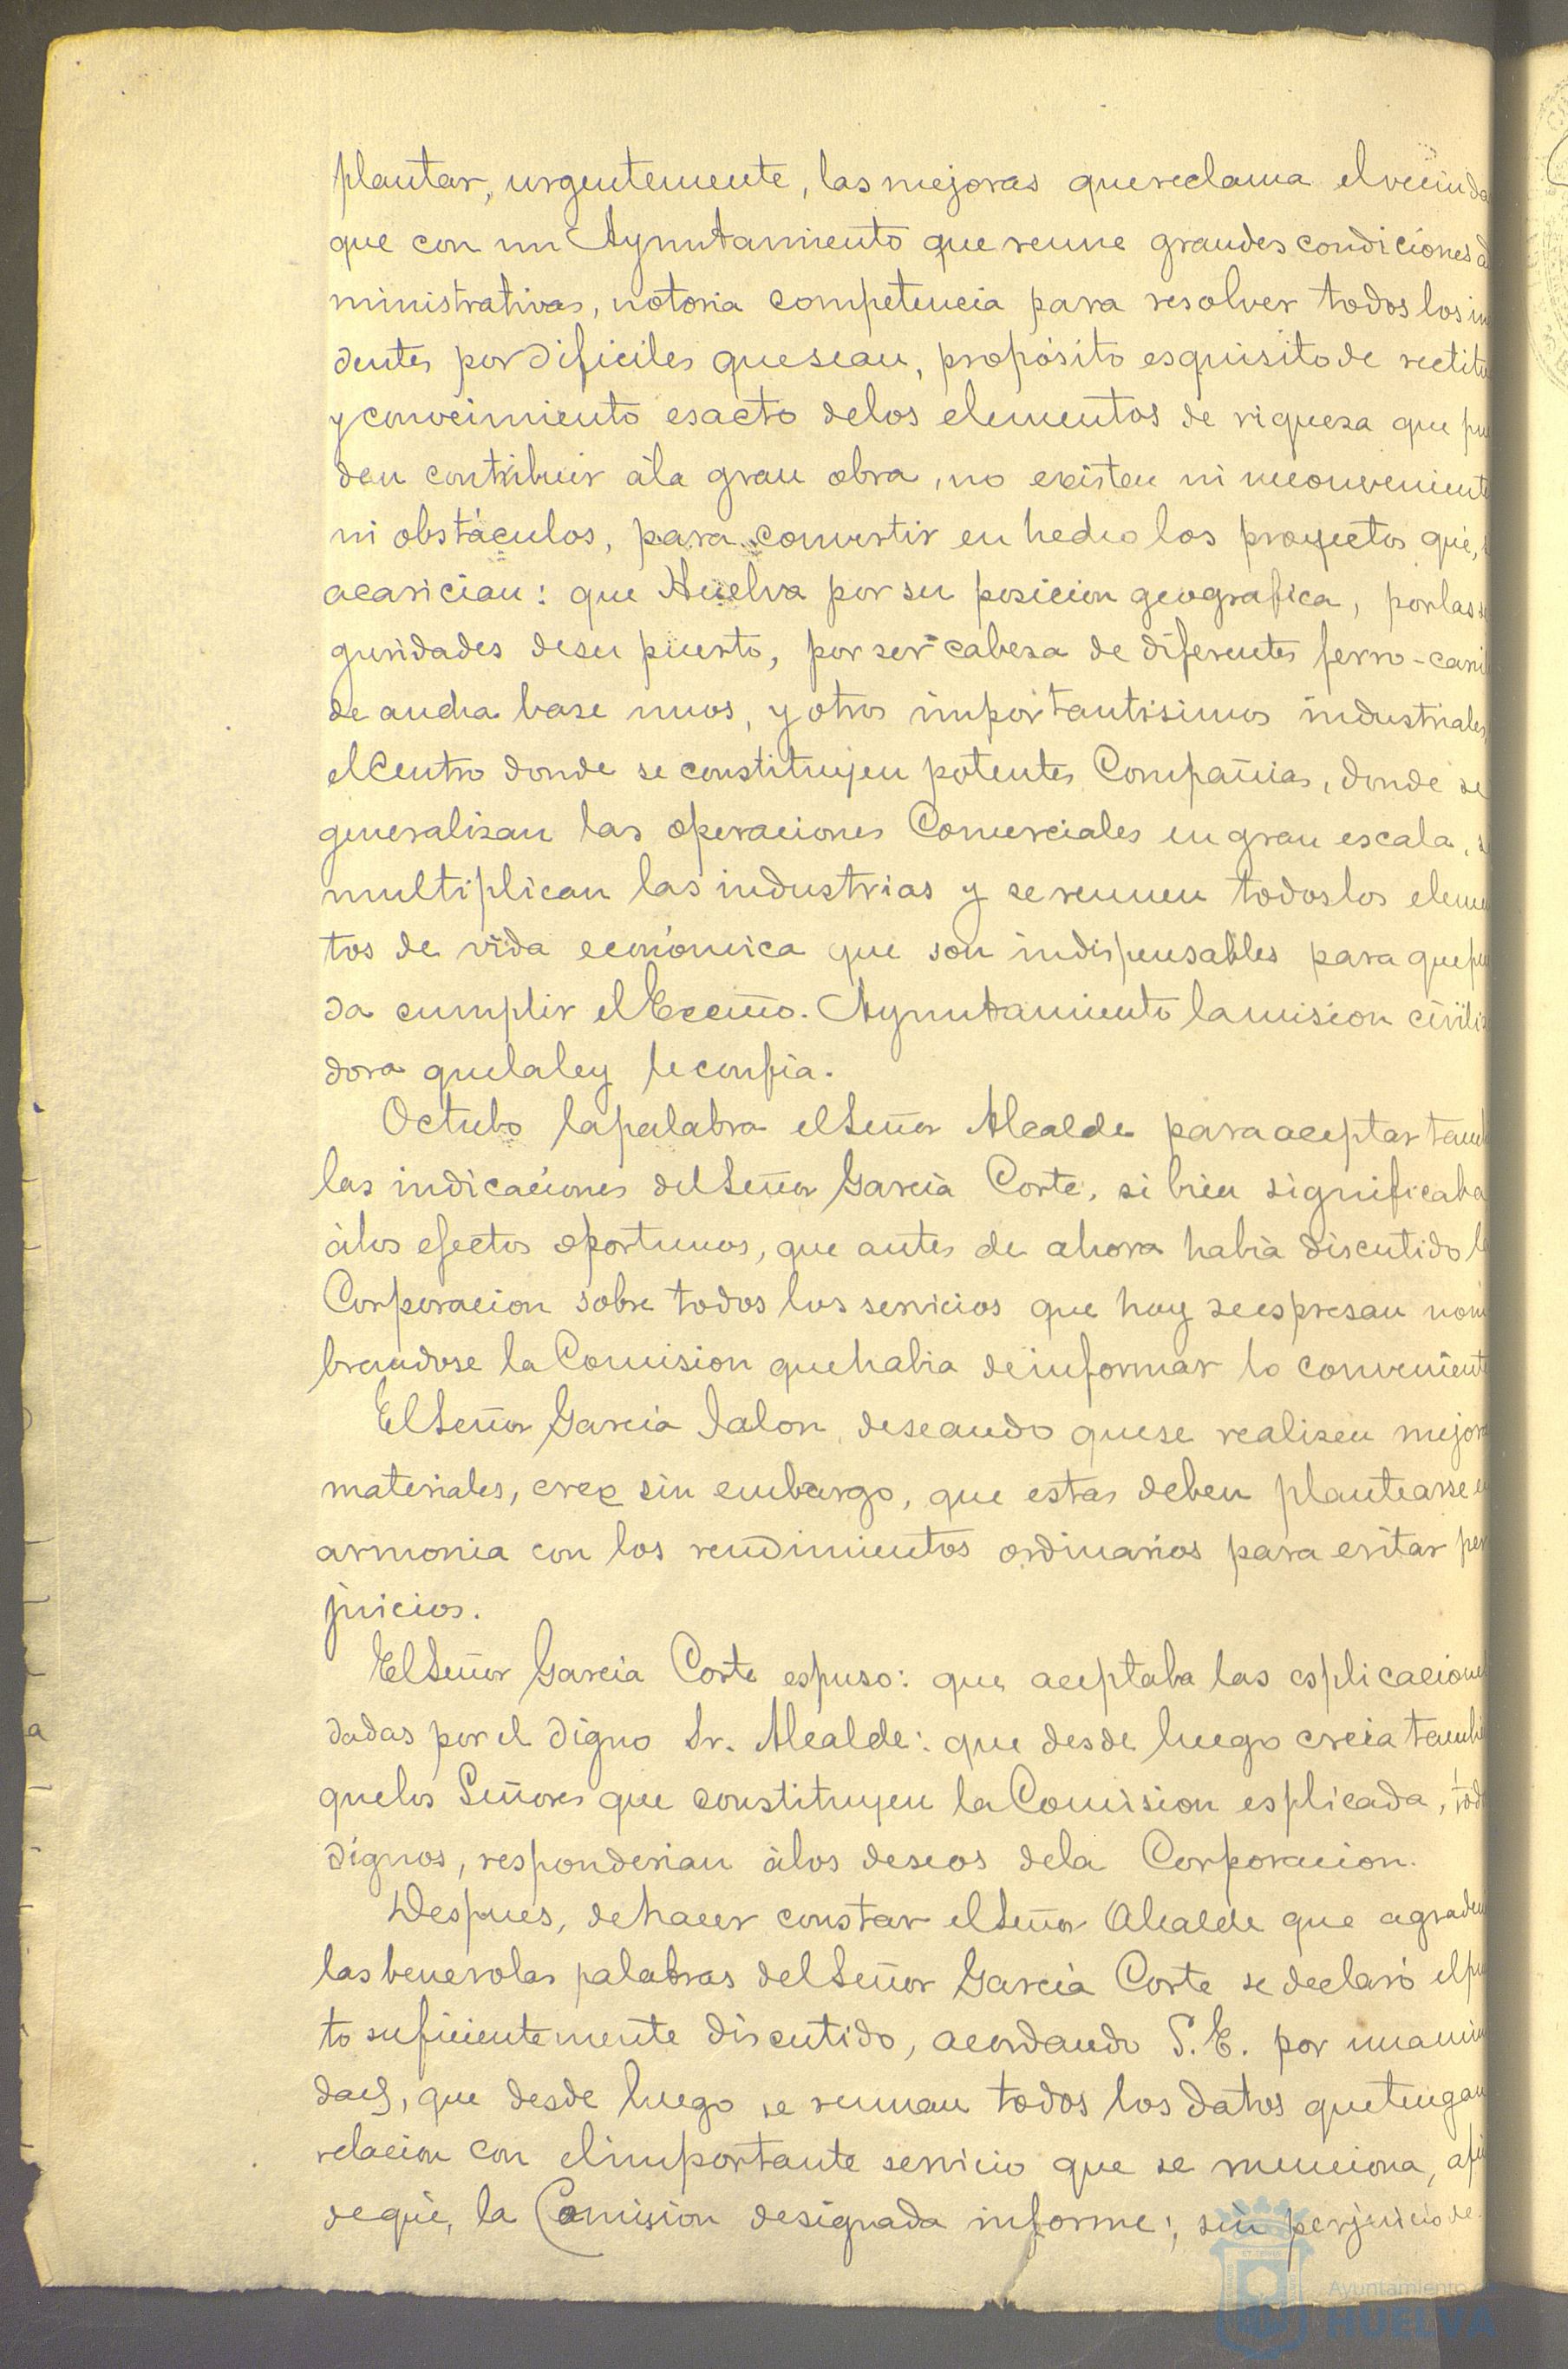 plantar, urgentemente, las mejoras que reclama el vecinda
que con un Ayuntamiento que reune grandes condiciones ad
ministrativas, notoria competencia para resolver todos los in
dentes por dificiles que sean, propósito esquisito de rectitu
y conocimiento esacto de los elementos de riquesa que pue
den contribuir á la gran obra, no existen ni inconveniente
ni obstáculos, para convertir en hecho los proyectos que, s
acarician: que Huelva por su posicion geografica, por las se
guridades de su puerto, por ser cabesa de diferentes ferro-carri
de ancha base unos, y otros importantisimos industriales,
el Centro donde se constituyen potentes Compañias, donde se
generalisan las operaciones Comerciales en gran escala, s
multiplican las industrias y se reunen todos los elemen
tos de vida económica que son indispensables para que pue
da cumplir el Excmo. Ayuntamiento la mision civiliz
dora que la ley le confia.
Octubo la palabra el Señor Alcalde para aceptar tamb
las indicaciones del Señor Garcia Corte, si bien significaba
á los efectos oportunos, que antes de ahora habia discutido l
Corporacion sobre todos los servicios que hoy se espresan nom
brandose la Comision que habia de informar lo conveniente
El Señor Garcia Jalon, deseando que se realisen mejora
materiales, cree sin embargo, que estas deben plantearse en
armonia con los rendimientos ordinarios para evitar per
juicios.
El Señor Garcia Corte espuso: que aceptaba las esplicacione
dadas por el digno Sr. Alcalde: que desde luego creia tambi
que los Señores que constituyen la Comision esplicada, tod
dignos, responderian á los deseos de la Corporacion.
Despues, de hacer constar el Señor Alcalde que agradeci
las benevolas palabras del Señor Garcia Corte se declaró el pun
to suficientemente discutido, acordando S.E. por unanimi
dad, que desde luego se reunan todos los datos que tengan
relacion con el importante servicio que se menciona, afin
de que, la Comision designada informe; sin perjuicio de
Ayuntamiento
HUELVA